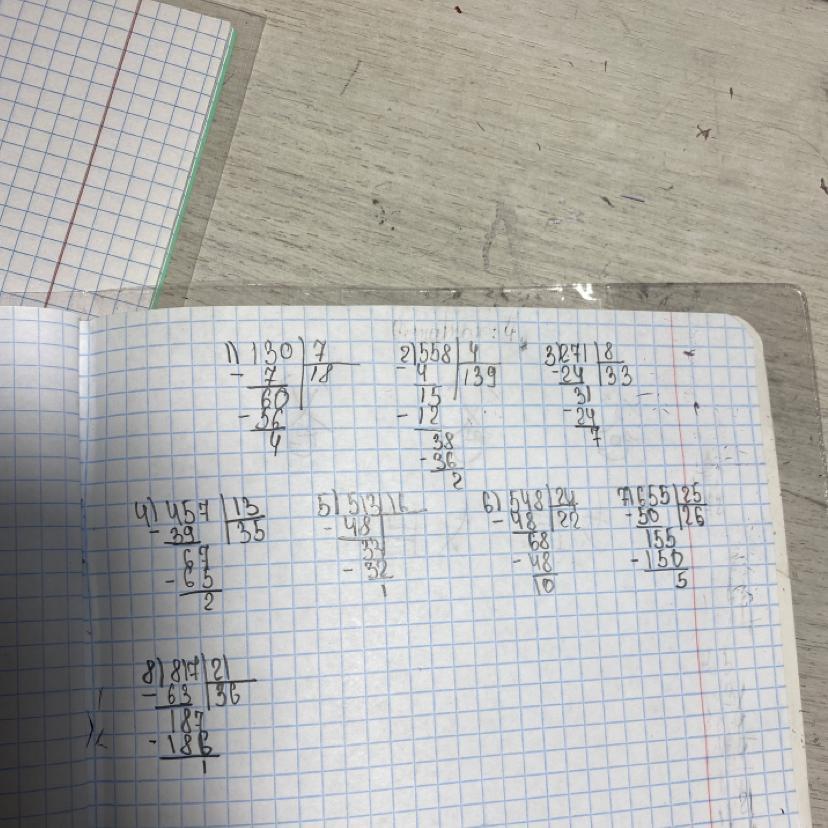 1) 130 | 7
- 7 | 18
60
- 56
4
2) 558 | 4
- 4 | 139
15
- 12
38
- 36
2
3) 271 | 8
- 24 | 33
31
- 24
7
4) 457 | 13
- 39 | 35
67
- 65
2
5) 513 | 6
- 48
33
- 32
1
6) 548 | 24
- 48 | 22
68
- 48
10
7) 655 | 25
- 50 | 26
155
- 150
5
8) 817 | 21
- 63 | 36
187
- 186
1